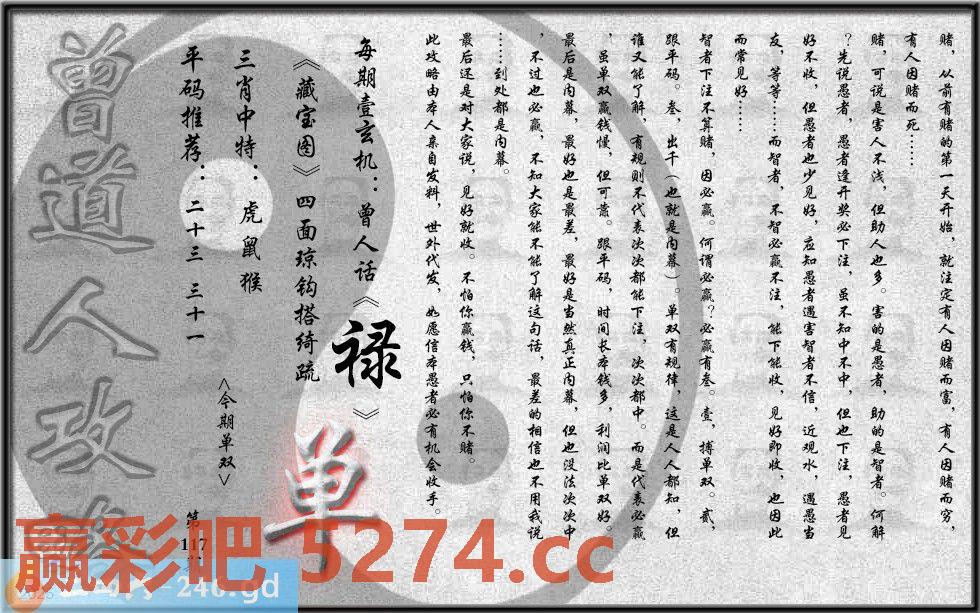 赌，从前有赌的第一天开始，就注定有人因赌而富，有人因赌而穷，
有人因赌而死……
赌，可说是害人不浅，但助人也多。害的是愚者，助的是智者。何解
？先说愚者，愚者逢开奖必下注，虽不知中不中，但也下注，愚者见
好不收，但愚者也少见好，应知愚者遇害智者不信，近观水，遇愚当
友，等等……而智者，不智必赢不注，能下能收，见好即收，也因此
而常见好……
智者下注不算赌，因必赢。何谓必赢？必赢有叁。壹，搏单双。贰，
跟平码。叁，出千（也就是内幕）。单双有规律，这是人人都知，但
谁又能了解，有规则不代表次次都能下注，次次都中。而是代表必赢
，虽单双赢钱慢，但可靠。跟平码，时间长本钱多，利润比单双好。
最后是内幕，最好也是最差，最好是当然真正内幕，但也没法次次中
，不过也必赢，不知大家能不能了解这句话，最差的相信也不用我说
……到处都是内幕。
最后还是对大家说，见好就收。不怕你赢钱，只怕你不赌。
此攻略由本人亲自发料，世外代发，如愿信本愚者必有机会收手。
每期壹玄机：曾人话《禄》
《藏宝图》四面琼钩搭绮疏
三肖中特：虎鼠猴
平码推荐：二十三 三十一
<今期单双>
单
第117
曾道人攻
赢彩吧 5274.cc
-246.gd